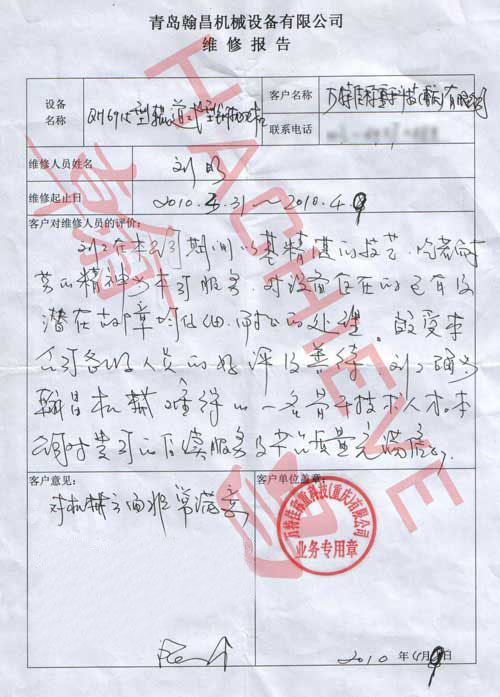 青岛翰昌机械设备有限公司
维修报告
设备名称 QH6915型辊道式型钢抛丸机
客户名称 重庆)有限公司
联系电话
维修人员姓名 刘明
维修起止日 2010.3.31～2010.4.9
客户对维修人员的评价:
刘工在本公司期间以其精湛的技艺、吃苦耐
劳的精神为本公司服务,对设备存在的已有及
潜在故障均仔细、耐心的处理。颇受本
公司各级人员的好评及善待,刘工确为
翰昌机械难得的一名骨干技术人才。本
公司对贵司的后续服务及产品质量充满信心。
客户意见:
对机械方面非常满意
客户单位盖章:
科技(重庆)有限公司
业务专用章
2010年4月9日
翰昌
HACHIEVE